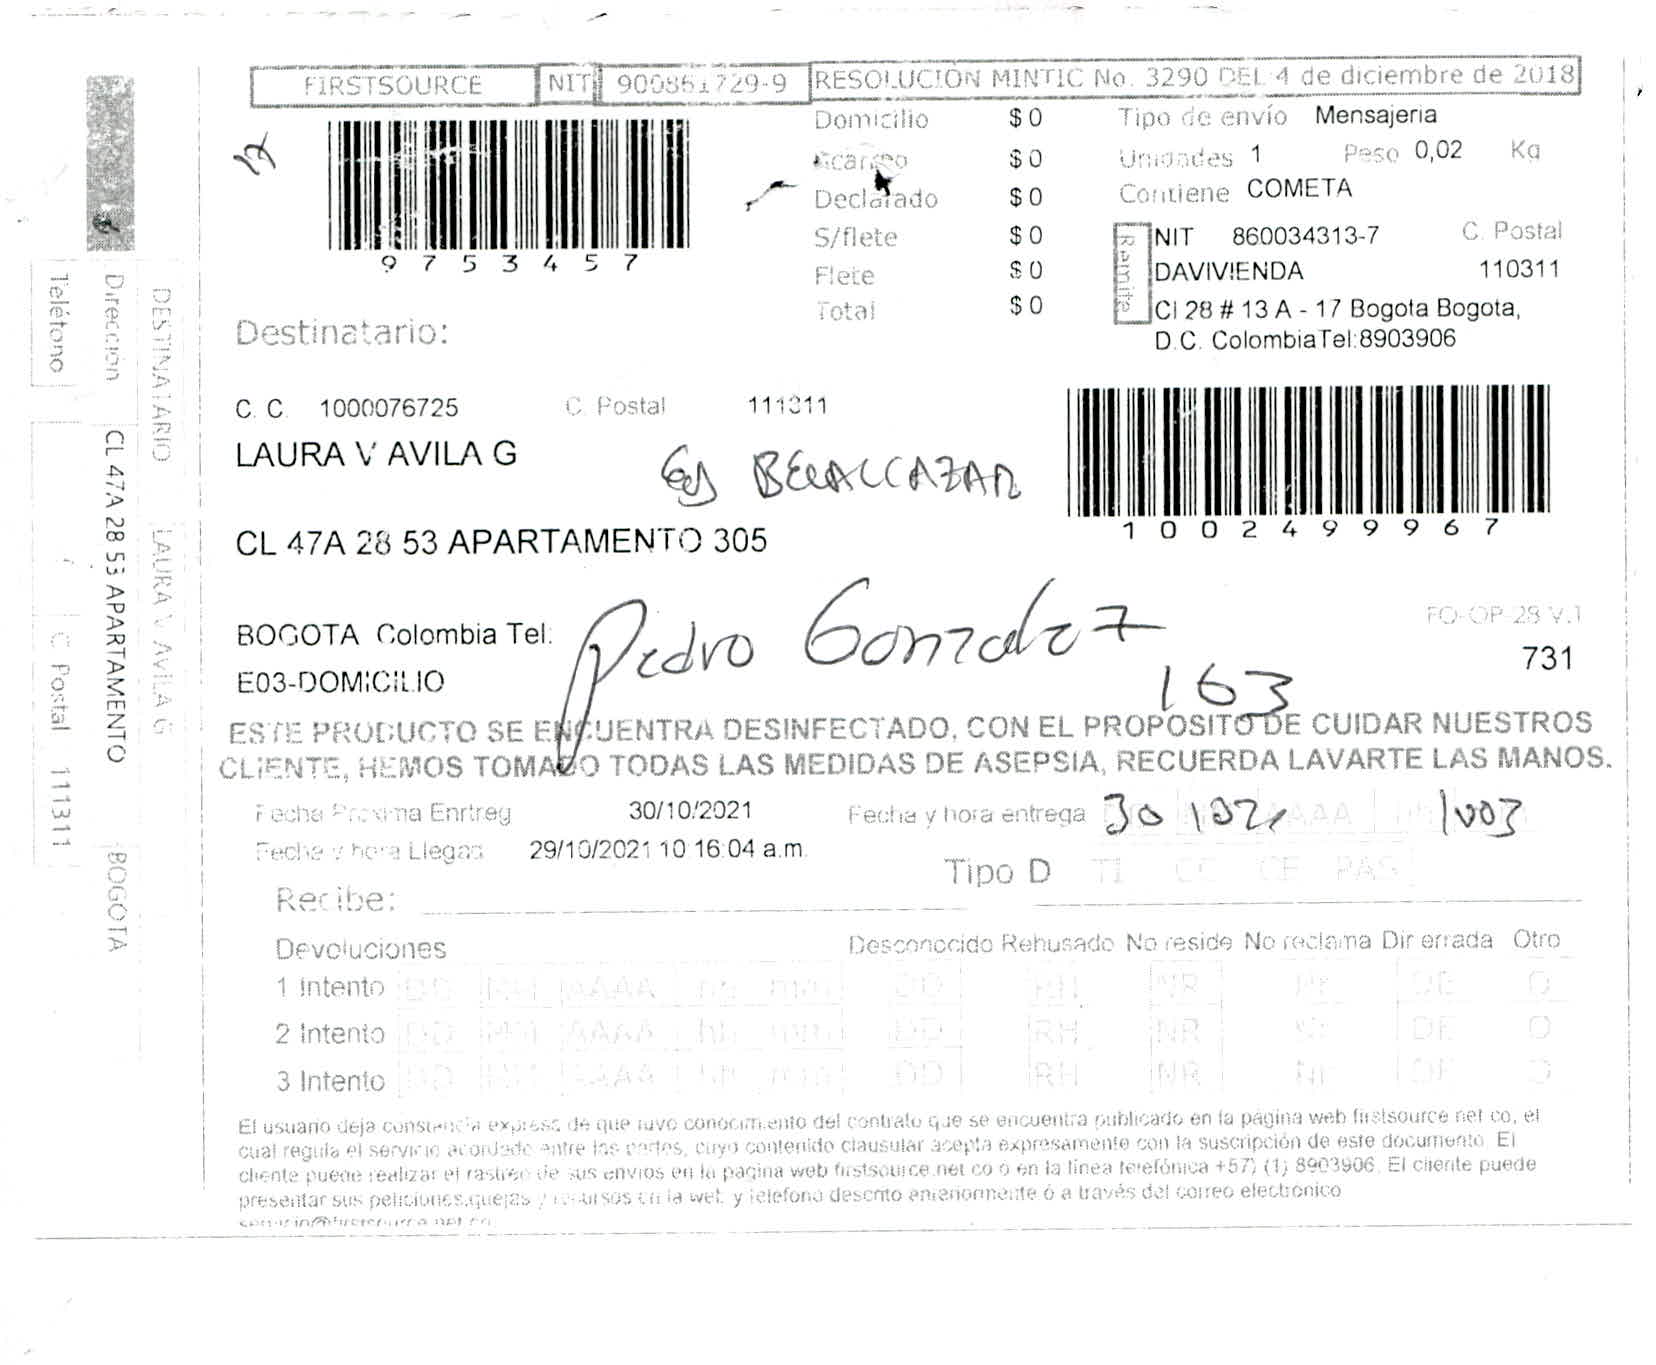 FIRSTSOURCE NIT 900861729-9 RESOLUCIÓN MINTIC No. 3290 DEL 4 de diciembre de 2018
Domicilio $ 0 Tipo de envío Mensajeria
Acarreo $ 0 Unidades 1 Peso 0,02 Kg
Declarado $ 0 Contiene COMETA
S/flete $ 0
Flete $ 0
Total $ 0
9753457
Remite
NIT 860034313-7 C. Postal
DAVIVIENDA 110311
Cl 28 # 13 A - 17 Bogota Bogota,
D.C. ColombiaTel:8903906
Destinatario:
C. C. 1000076725 C. Postal 111311
LAURA V AVILA G
BELALCAZAR
10024999967
CL 47A 28 53 APARTAMENTO 305
BOGOTA Colombia Tel:
Pedro Gonzalez
163
FO-OP-28 V.1
731
E03-DOMICILIO
ESTE PRODUCTO SE ENCUENTRA DESINFECTADO, CON EL PROPOSITO DE CUIDAR NUESTROS
CLIENTE, HEMOS TOMADO TODAS LAS MEDIDAS DE ASEPSIA, RECUERDA LAVARTE LAS MANOS.
Fecha Proxima Enrtreg 30/10/2021 Fecha y hora entrega 30
Fecha y hora Llegas 29/10/2021 10:16:04 a.m.
Tipo D TI CC CE PAS
Recibe:
Devoluciones Desconocido Rehusado No reside No reclama Dir errada Otro
1 Intento DD MM AAAA hh mm DD RH NR Nr DE O
2 Intento DD MM AAAA hh mm DD RH NR Nr DE O
3 Intento DD MM AAAA hh mm DD RH NR Nr DE O
El usuario deja constancia expresa de que tuvo conocimiento del contrato que se encuentra publicado en la página web firstsource net co, el
cual regula el servicio acordado entre las partes, cuyo contenido clausular acepta expresamente con la suscripción de este documento. El
cliente puede realizar el rastreo de sus envios en la página web firstsource.net co o en la línea telefónica +57) (1) 8903906. El cliente puede
presentar sus peticiones,quejas y recursos en la web y telefono descrito anteriormente ó a través del correo electronico
servicio@firstsource.net co
DESTINATARIO LAURA V AVILA G
Dirección CL 47A 28 53 APARTAMENTO BOGOTA
Teléfono C Postal 111311